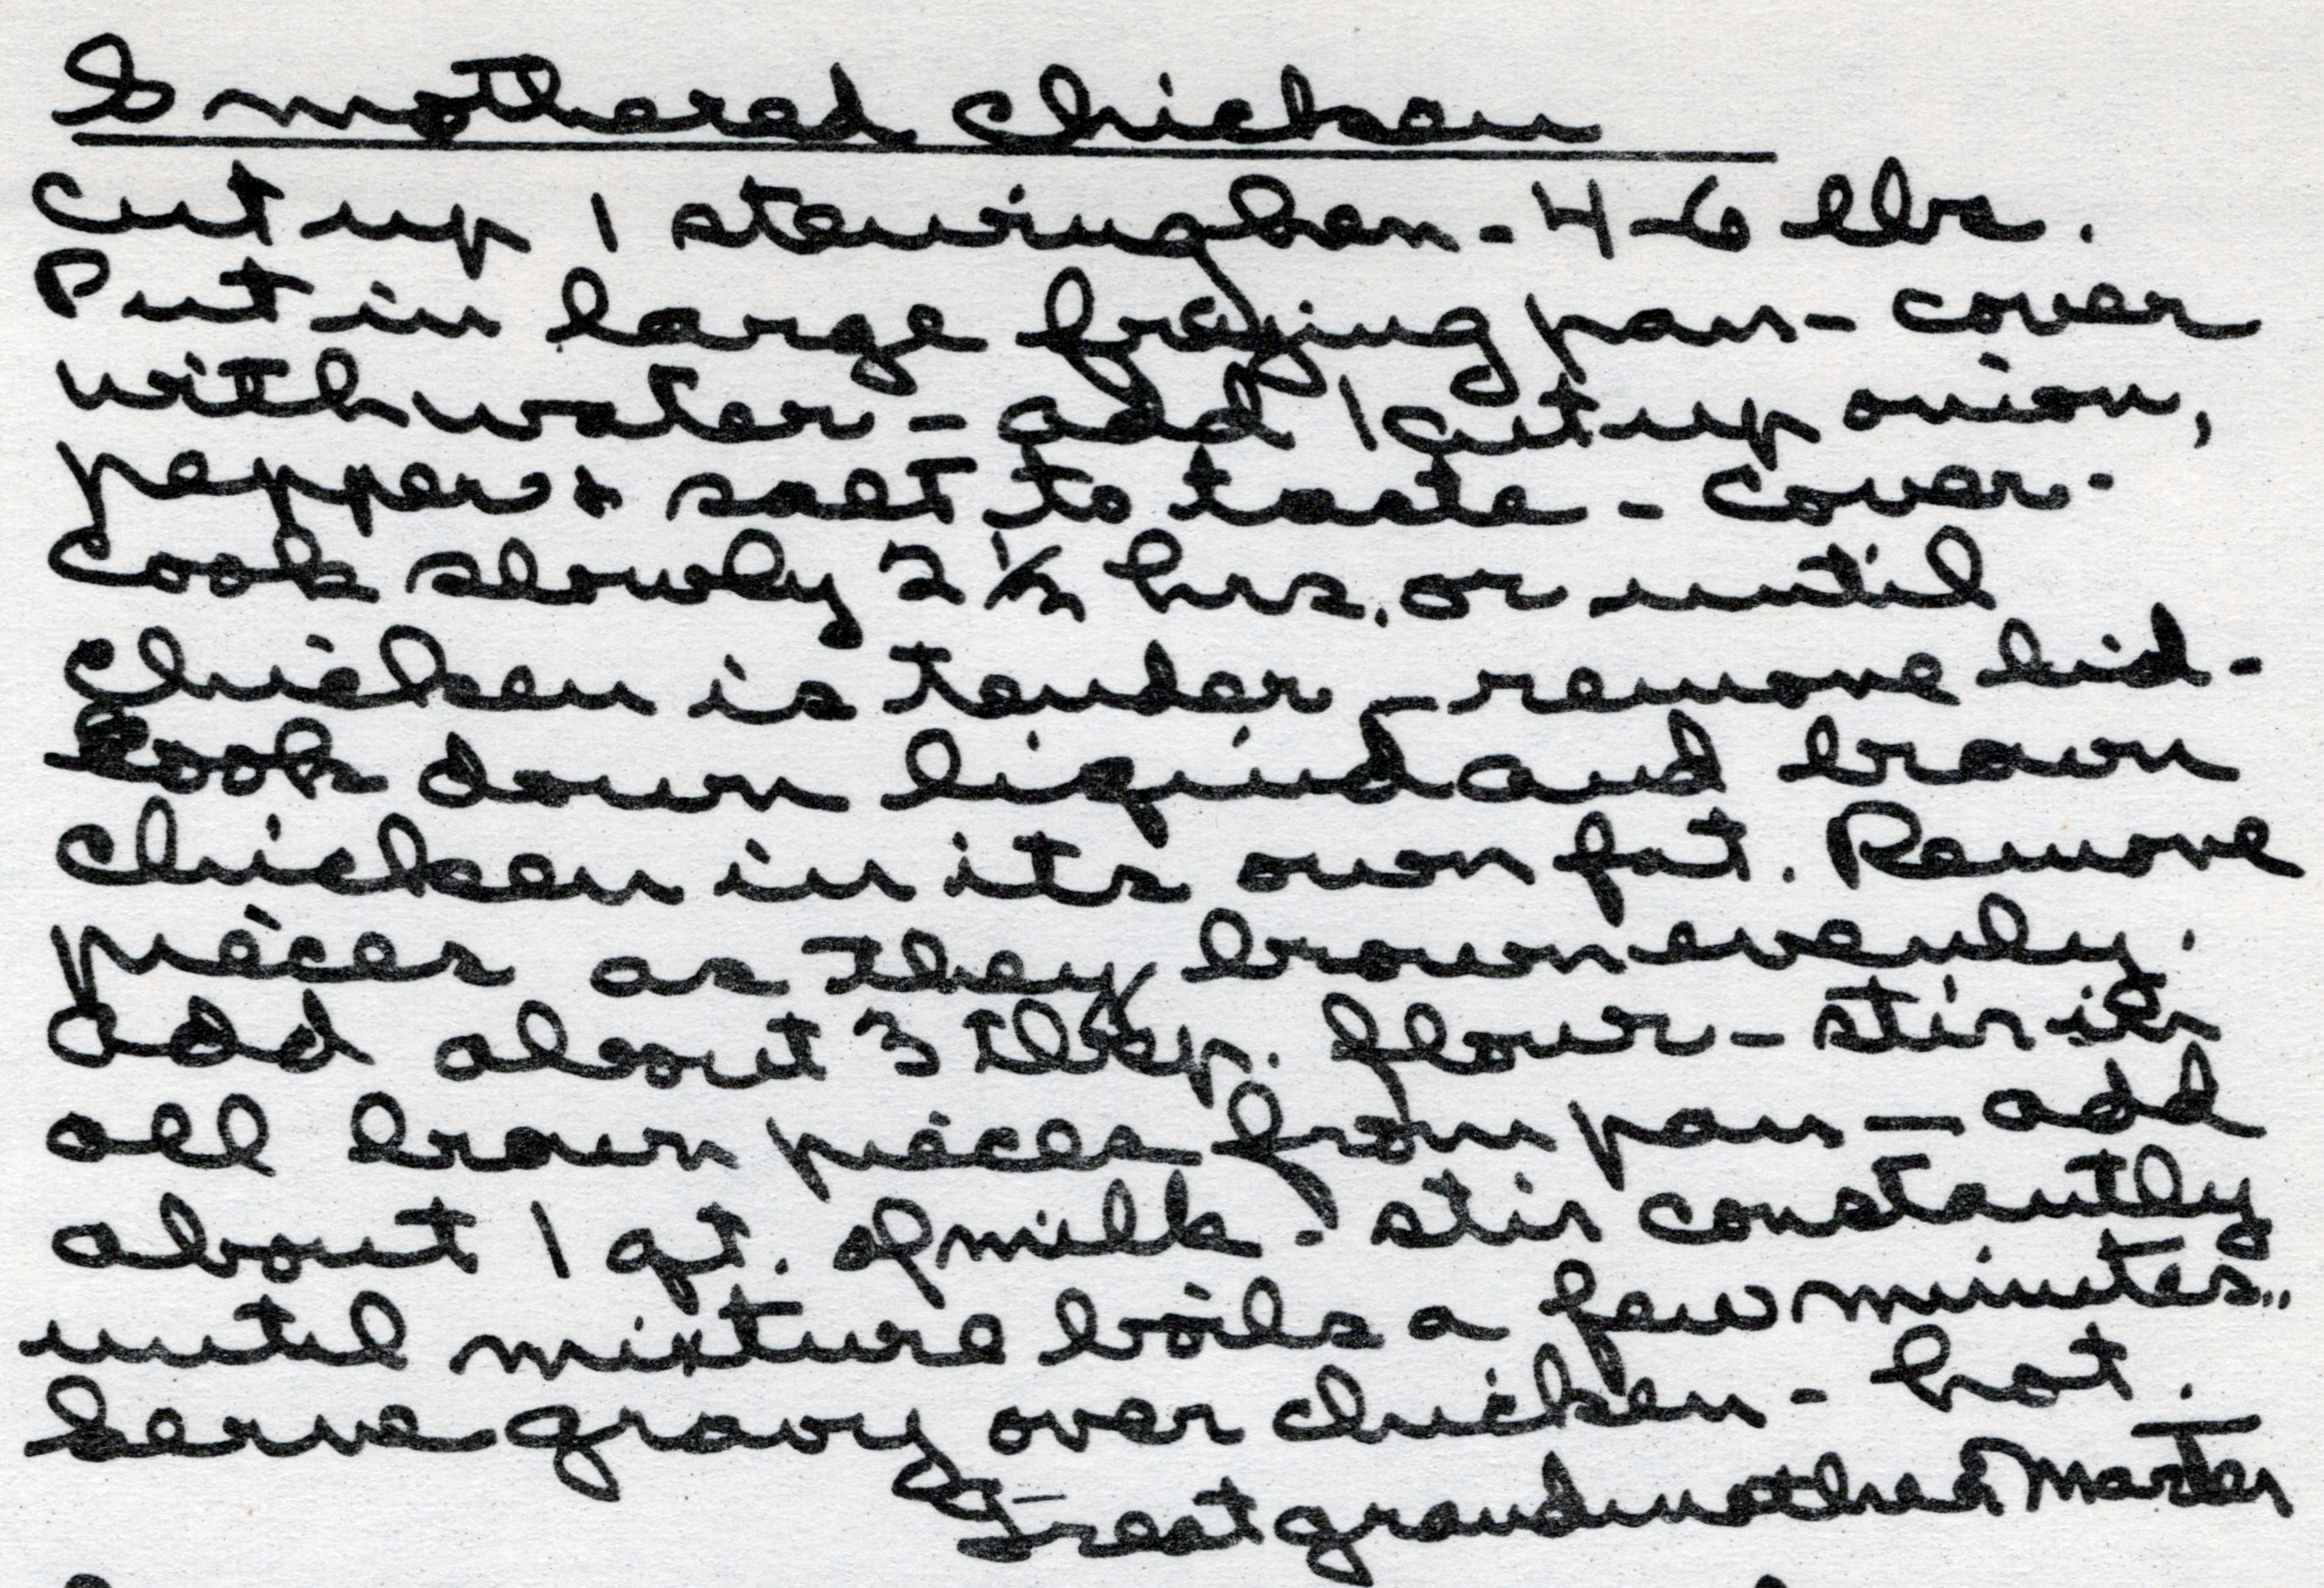 Smothered Chicken
Cut up 1 stewing hen - 4-6 lbs.
Put in large frying pan - cover
with water - add 1 cut up onion,
pepper & salt to taste - cover -
Cook slowly 2 1/2 hrs. or until
chicken is tender - remove lid -
Cook down liquid and brown
chicken in its own fat. Remove
pieces as they brown evenly.
Add about 3 tbsp. flour - stir in
all brown pieces from pan - add
about 1 qt. of milk - stir constantly
until mixture boils a few minutes..
Serve gravy over chicken - hot.
Great grandmother Marter